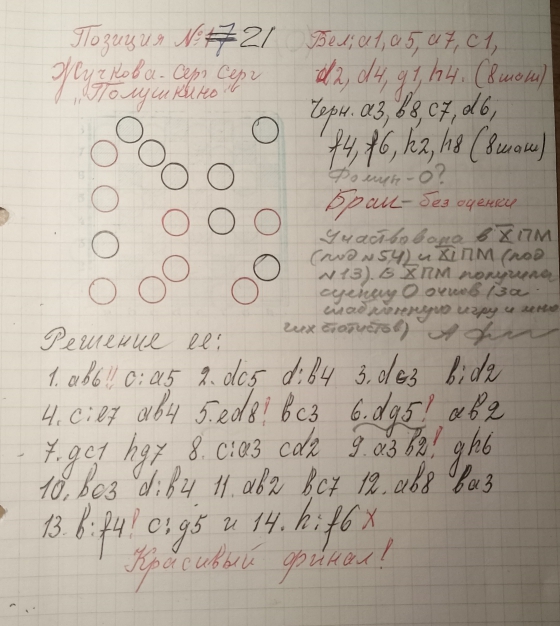 Позиция № 21
Жучкова Серг Серг
"Полушкино"
Бел: a1, a5, a7, c1,
d2, d4, g1, h4. (8 шаш)
Черн. a3, b8, c7, d6,
f4, f6, h2, h8 (8 шаш)
Фомин - 0?
Брак - без оценки
Участвовала в X ПМ
(под №54) и XI ПМ (под
№13). В X ПМ получила
оценку 0 очков (за
шаблонную игру и мно
гих статистов)
Решение ее:
1. ab6!! c:a5 2. dc5 d:b4 3. dc3 b:d2
4. c:e7 ab4 5. ed8! bc3 6. dg5! ab2
7. gc1 hg7 8. c:a3 cd2 9. a3b2! gh6
10. bc3 d:b4 11. ab2 bc7 12. ab8 ba3
13. b:f4! c:g5 и 14. h:f6 X
Красивый финал!